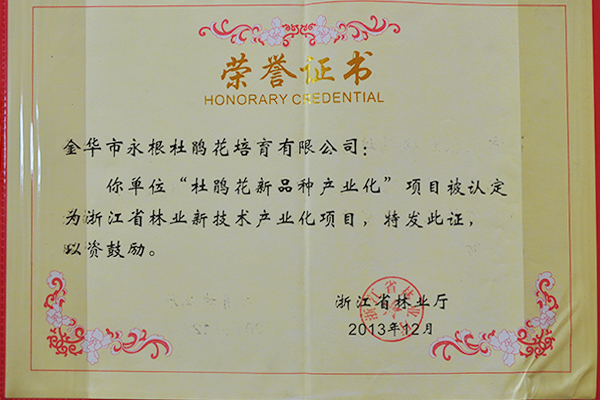 荣誉证书
HONORARY CREDENTIAL
金华市永根杜鹃花培育有限公司：
你单位“杜鹃花新品种产业化”项目被认定
为浙江省林业新技术产业化项目，特发此证，
以资鼓励。
浙江省林业厅
2013年12月